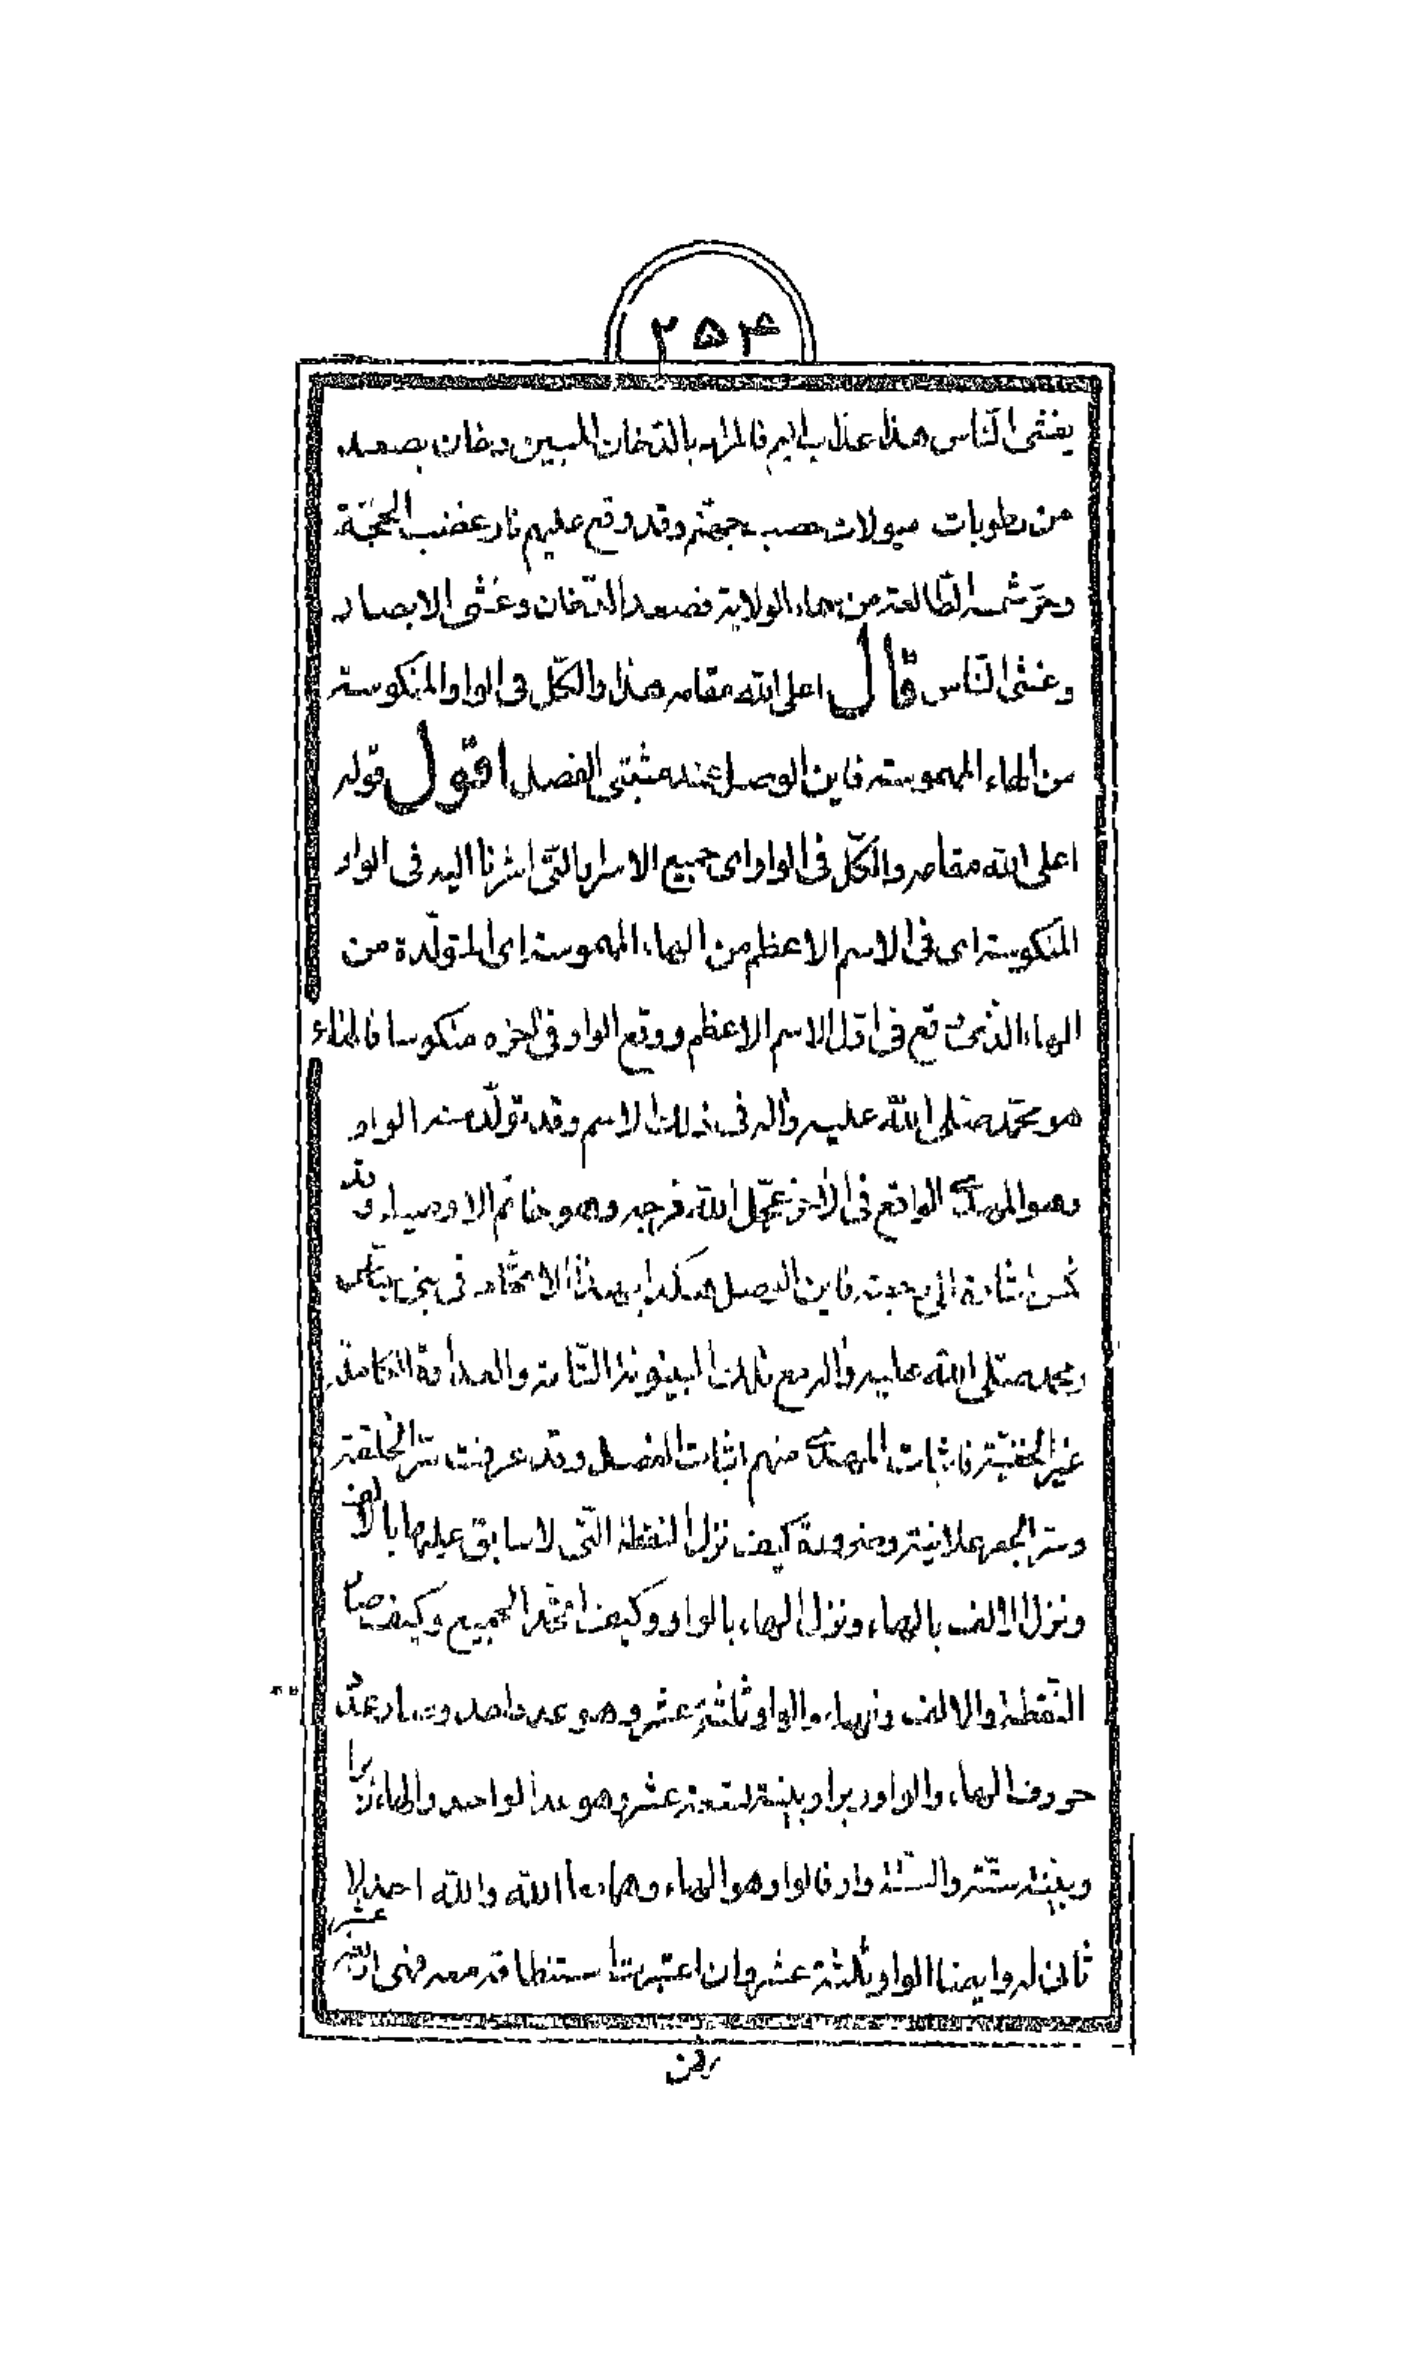 ۲۵۴
يغشى النّاس هذا عذاب اليم فالمراد بالدّخان المبين دخان يصعد
من رطوبات قبولات حصب جهنّم وقد وقع عليهم نار غضب الحجّة
وحرّ شمسه الطّالعة من سماء الولاية فصعد الدّخان وغشى الابصار
وغشى النّاس قال اعلى الله مقامه هذا والكلّ فى الواو المنكوسة
من الهاء المهموسة فاين الوصل عند مثبتى الفصل اقول قوله
اعلى الله مقامه والكلّ فى الواو اى جميع الاسرار التّى اشرنا اليه فى الواو
المنكوسة اى فى الاسم الاعظم من الهاء المهموسة اى المتولّدة من
الهاء الذى وقع فى اوّل الاسم الاعظم ووقع الواو فى اخره منكوسا فالهاء
هو محمّد صلى الله عليه واله فى ذلك الاسم وقد تولّد منه الواو
وهو المهدى الواقع فى الاخر عجّل الله فرجه وهو خاتم الاوصياء وقد
نكس اشارة الى رجعته فاين الفصل هكذا بهذا الاتّحاد فى بنى
ومحمد صلى الله عليه واله مع تلك البينونة التّامة والعداوة الكاملة
غير الخفيّة فاثبات المهدى منهم اثبات الفصل وقد عرفت سرّ الخليقة
وسرّ الجمع علانية وضرورة كيف نزل النقطة التّى لا سابق عليها بالالف
ونزل الالف بالهاء ونزل الهاء بالواو وكيف اتّحد الجميع وكيف صار
النّقطة والالف والهاء والواو ثلثة عشر وهو عدد احد وصار عدد
حروف الهاء والواو زبرا وبينة تسعة عشر وهو عدد الواحد والهاء زبرا
وبينة ستّة والستّة واو فالواو هو الهاء وهما معا الله والله احد لا
ثانى له وايضا الواو ثلثة عشر وان اعتبرت استنطاقه معه فهى اربعة عشر